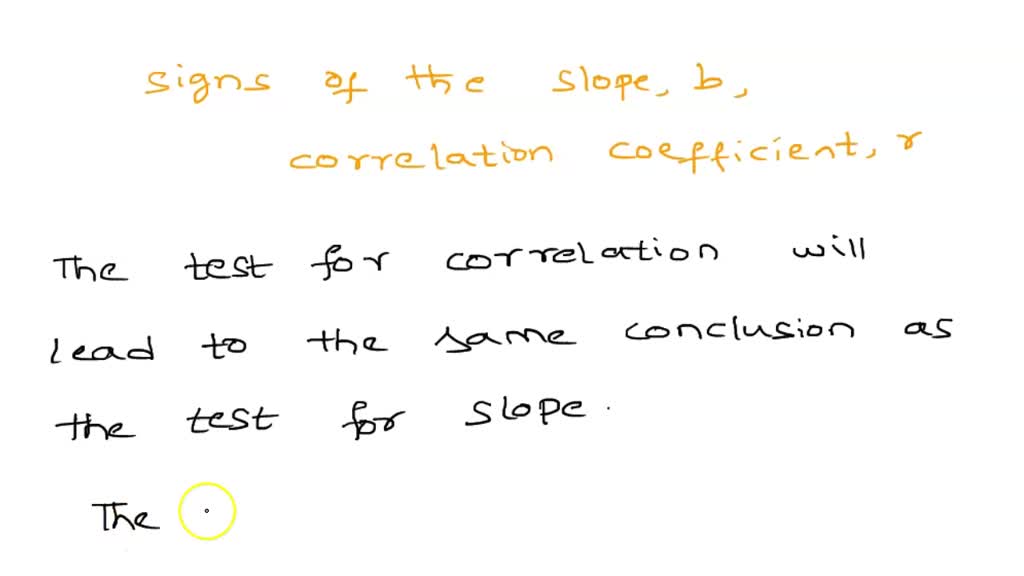 signs of the slope, b,
correlation coefficient, r
The test for correlation will
lead to the same conclusion as
the test for slope.
The